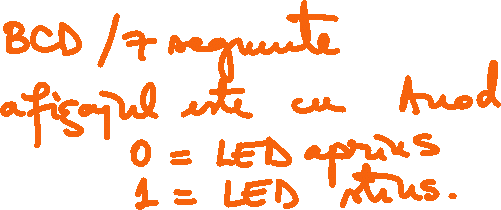 BCD / 7 segmente
afișajul este cu Anod
0 = LED aprins
1 = LED stins.